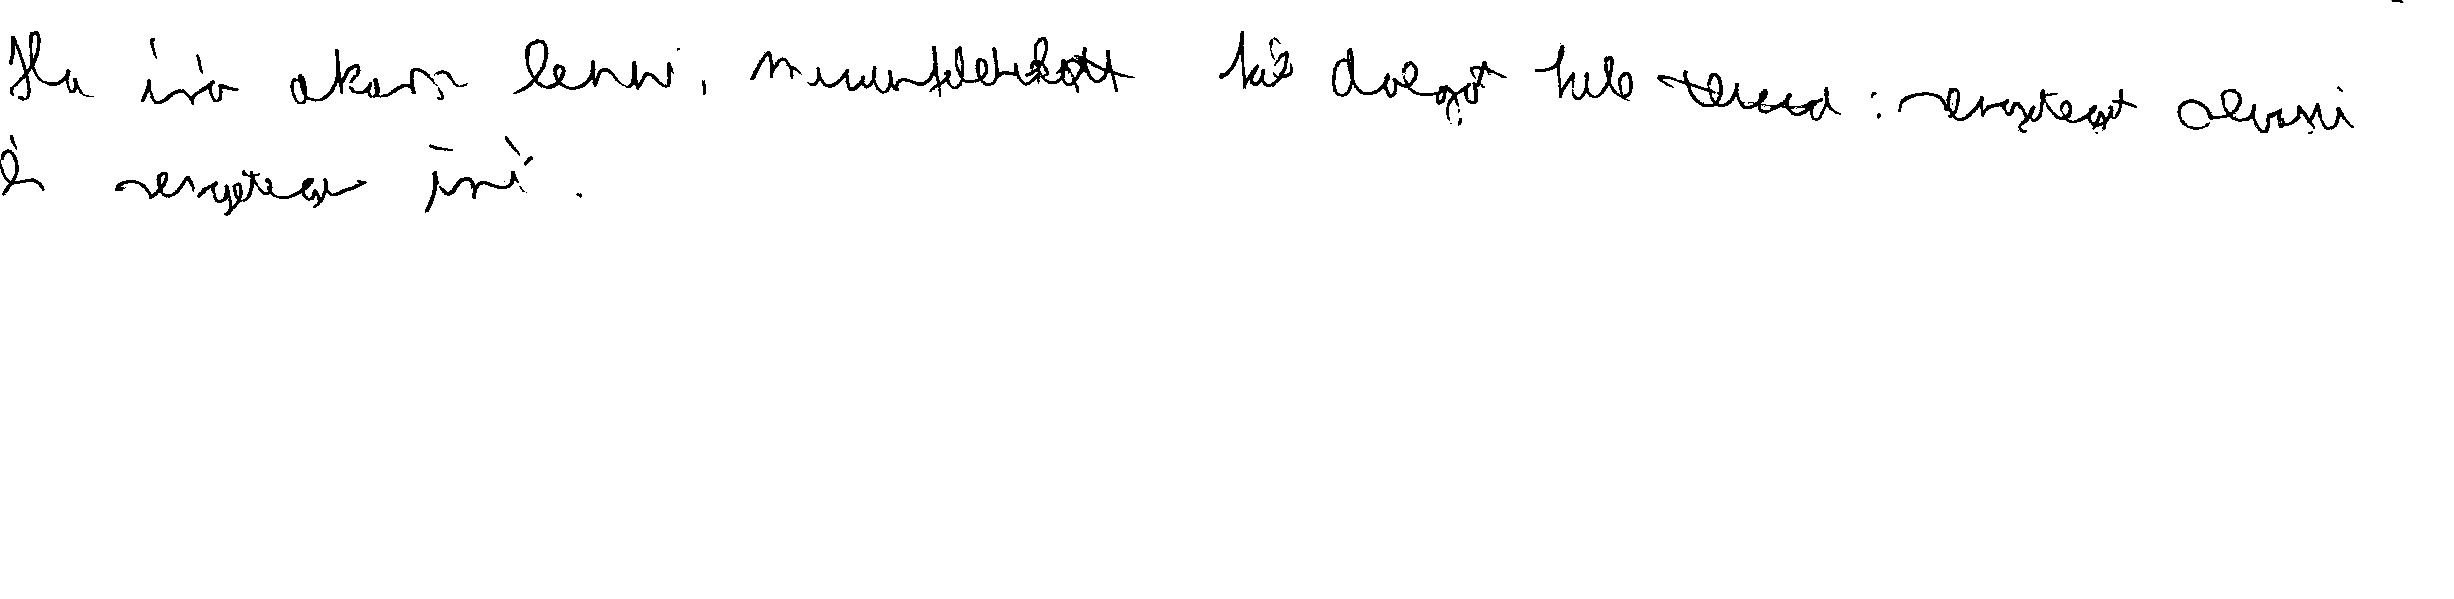 Ha író akarsz lenni, mindenekelőtt két dolgot kell tenned: rengeteget olvasni
és rengeteget írni.